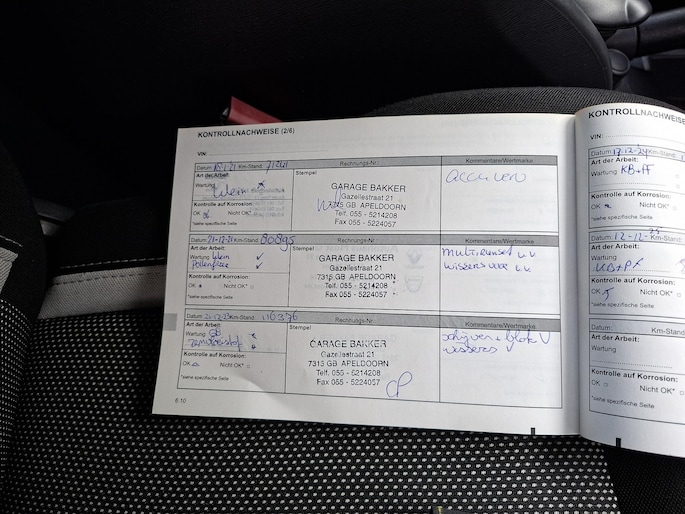 KONTROLLNACHWEISE (2/6)
VIN:
Datum: Km-Stand:
Art der Arbeit:
Wartung
Klein
Kontrolle auf Korrosion:
OK Nicht OK*
*siehe spezifische Seite
Rechnungs-Nr.:
Stempel
GARAGE BAKKER
Gazellestraat 21
7315 GB APELDOORN
Telf. 055 - 5214208
Fax 055 - 5224057
Kommentare/Wertmarke
accu
Datum: 21-12-21 Km-Stand: 80895
Art der Arbeit:
Wartung klein
pollenfilter
Kontrolle auf Korrosion:
OK Nicht OK*
*siehe spezifische Seite
Rechnungs-Nr.:
Stempel
GARAGE BAKKER
Gazellestraat 21
7315 GB APELDOORN
Telf. 055 - 5214208
Fax 055 - 5224057
Kommentare/Wertmarke
multiriemset v.v
wissers v.v
Datum: Km-Stand: 116376
Art der Arbeit:
Wartung GB
Kontrolle auf Korrosion:
OK Nicht OK*
*siehe spezifische Seite
Rechnungs-Nr.:
Stempel
GARAGE BAKKER
Gazellestraat 21
7315 GB APELDOORN
Telf. 055 - 5214208
Fax 055 - 5224057
Kommentare/Wertmarke
schijven + blok V
wissers V
6.10
KONTROLLNACHWEISE
VIN:
Datum: 17-12-24 Km-Stand:
Art der Arbeit:
Wartung KB+PF
Kontrolle auf Korrosion:
OK Nicht OK*
*siehe spezifische Seite
12-12-25
Art der Arbeit:
KB+PF
Nicht OK*
*siehe spezifische Seite
Datum: Km-Stand:
Art der Arbeit:
Wartung
Kontrolle auf Korrosion:
OK Nicht OK*
*siehe spezifische Seite